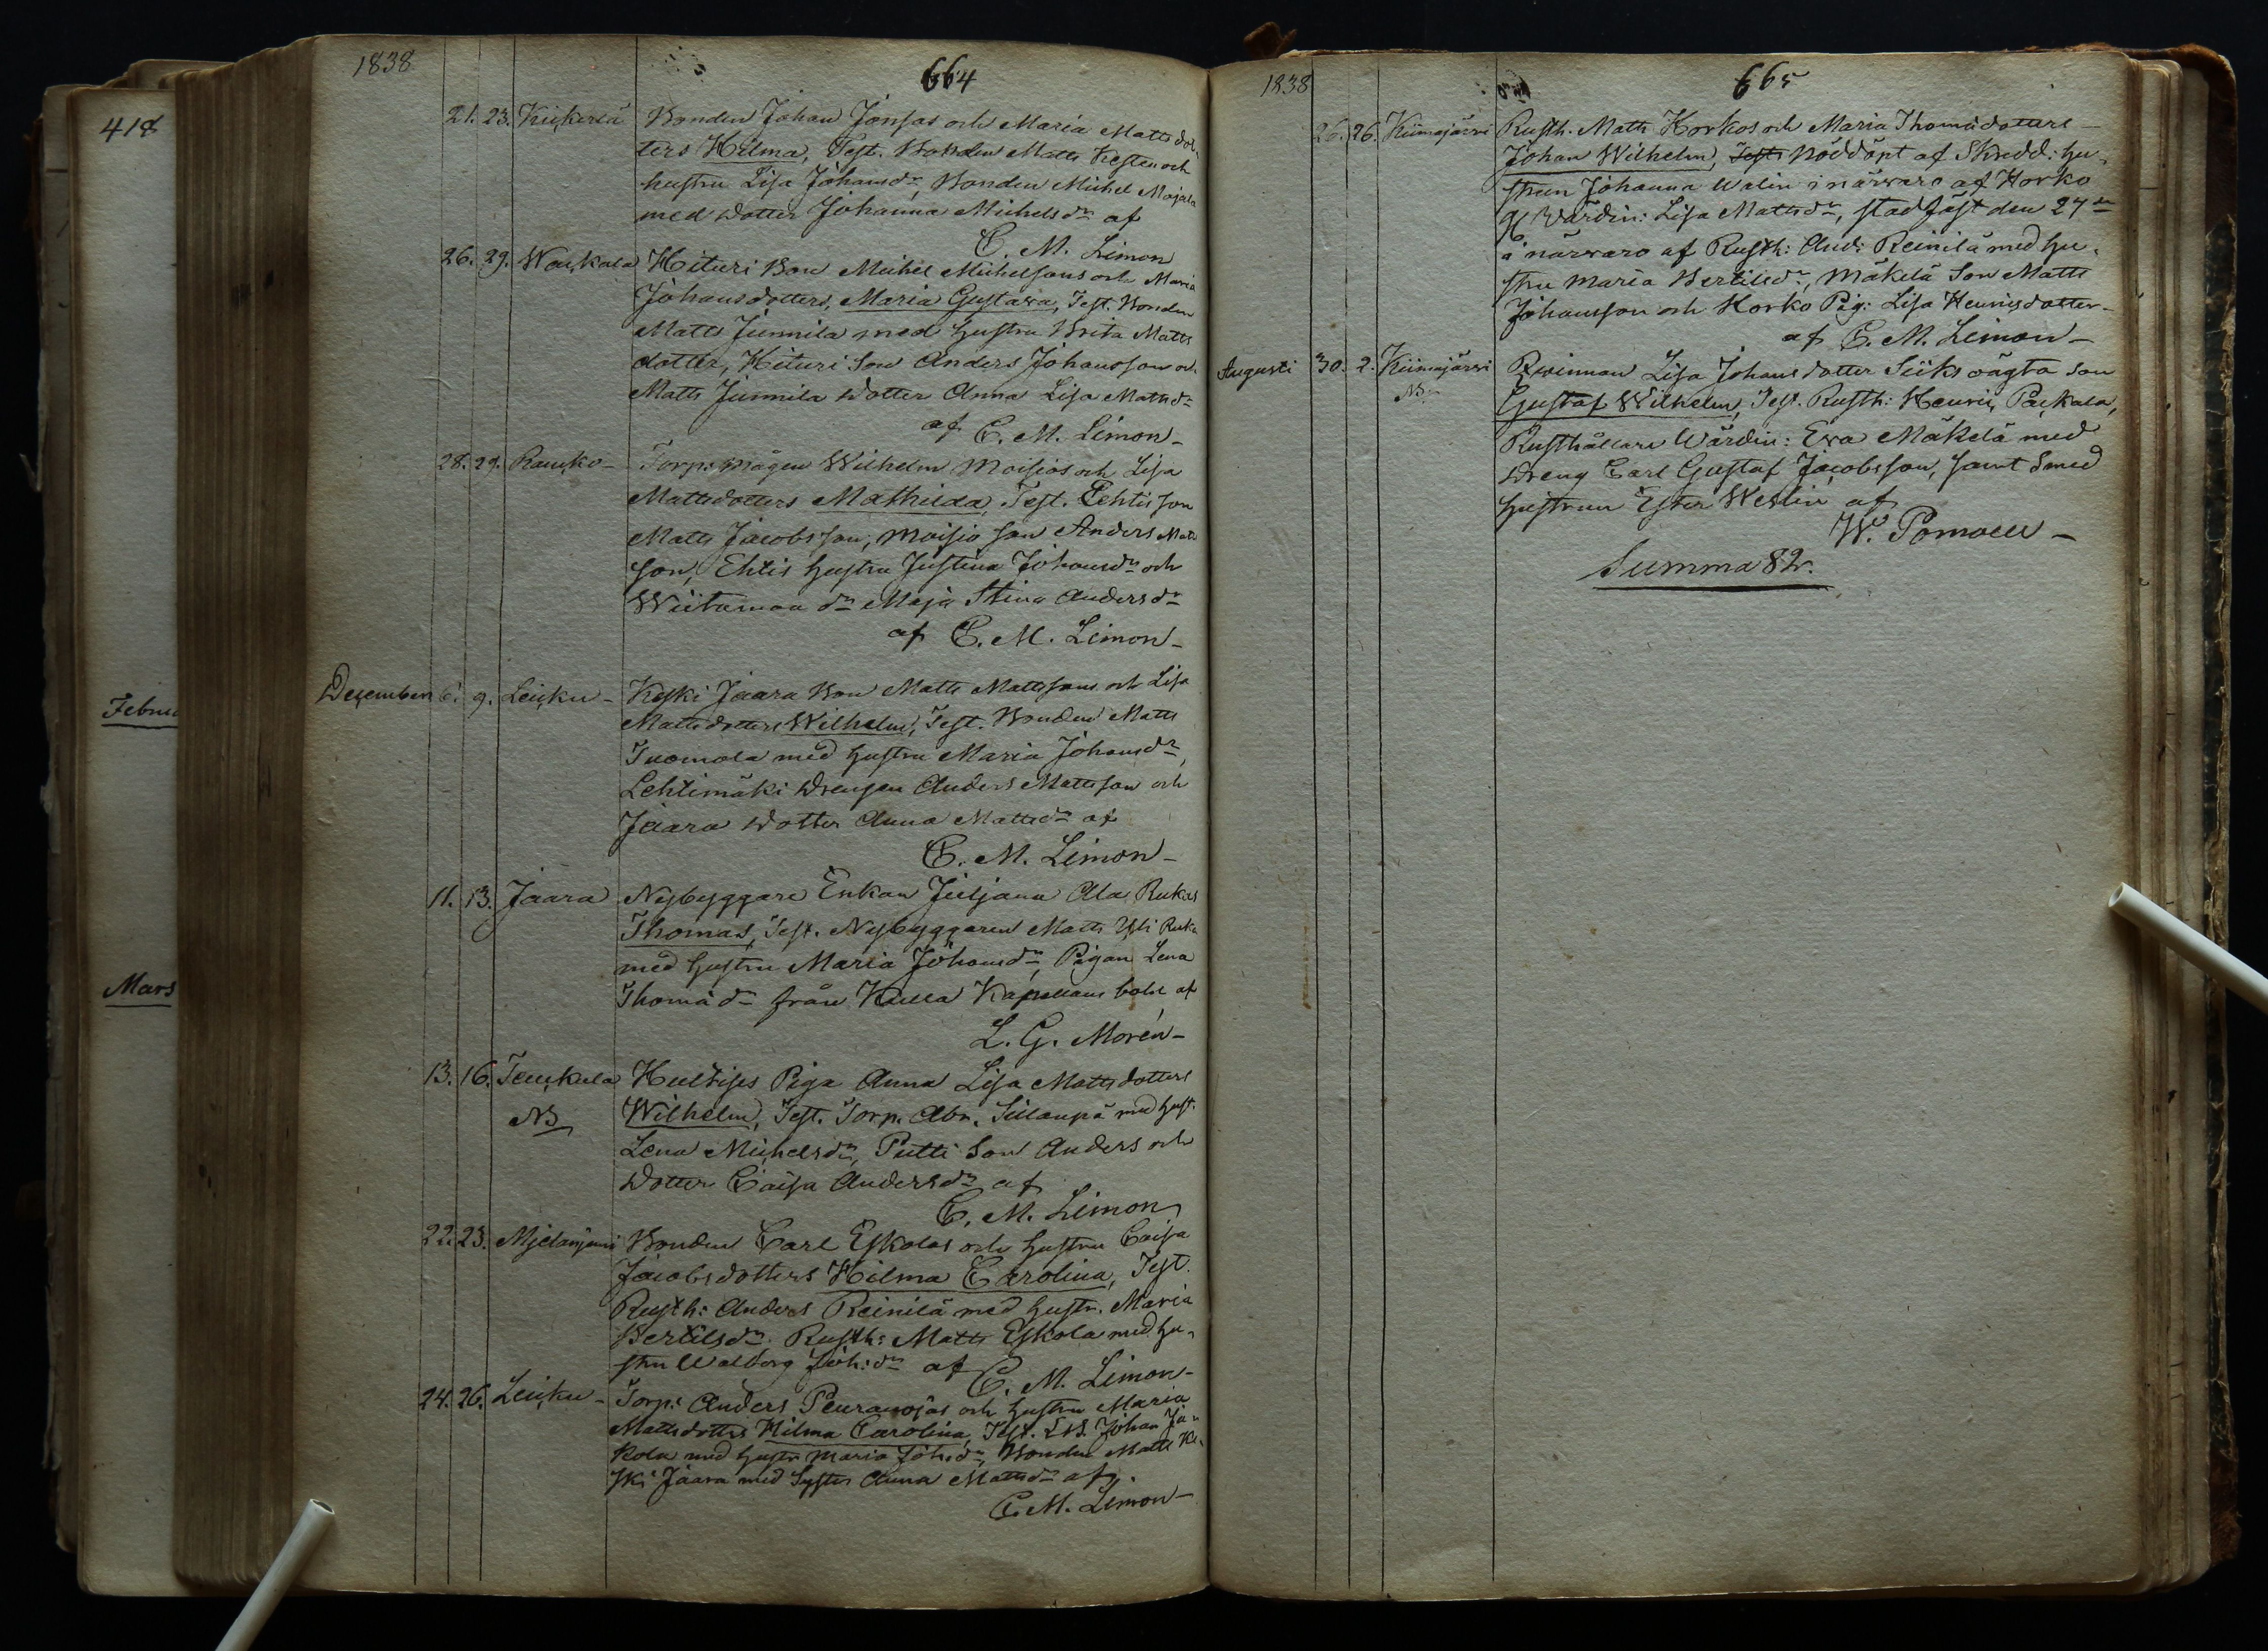 418
Februa
Mars
1838
664
21. 23. Kiikeriä Bonden Johan Jonsas och Maria Matts dot-
ters Hilma, Test. Bonden Matts Kesten och
hustru Lisa Johansdr, Bonden Michel Majala
med dotter Johanna Michelsdr af
C. M. Limon
26. 29. Hituri Son Michel Michelsons och Maria
Johansdotters, Maria Gustava, Test. Bonden
Matts Junnila med hustru Brita Matts
dotter, Hituri Son Anders Johansson och
Matts Junnila dotter Anna Lisa Mattsdr
af C. M. Limon -
28. 29. Torp: mågen Wilhelm Moisios och Lisa
Mattsdotters Mathilda, Test. Ehtis son
Matts Jacobsson, Moisio son Anders Matts
son, Ehtis hustru Justina Johansdr och
Wiitamaa dr Maja Stina Andersdr
af C. M. Limon -
December 6. 9. Leiçku - Keski Jaara Son Matts Mattssons och Lisa
Mattsdotters Wilhelm, Test. Bonden Matts
Tuomola med hustru Maria Johansdr,
Lehtimäki Drengen Anders Mattsson och
Jaara dotter Anna Mattsdr af
C. M. Limon -
11. 13. Jaara Nybyggare Enkan Juljana Ala Rukas
Thomas, Test. Nybyggaren Matts Yli Ruka
med hustru Maria Johansdr, Pigan Lena
Thomædr från Kulla Kapellans bohl af
L. G. Morén -
13. 16. Hultises Piga Anna Lisa Mattsdotters
NB Wilhelm, Test. Torp. Abr. Sillanpä med hust.
Lena Michelsdr, Putti Son Anders och
dotter Caisa Andersdr af
C. M. Limon
22. 23. Bonden Carl Eskolas och hustru Caisa
Jacobsdotters Hilma Carolina, Test.
Rusth: Anders Reinilä med hustr. Maria
Bertilsdr. Rusth: Matts Eskola med hu-
stru Walborg Joh:dr af C. M. Limon -
24. 26. Leiçku - Torp: Anders Peuranojas och hustru Maria
Mattsdotters Hilma Carolina, Test. Johan Ja-
kola med hustr Maria Joh:dr, Bonden Matts Ke-
ski Jaara med Syster Anna Mattsdr af
C. M. Limon -
1838
665
26. 26. Kiimajärvi Rusth. Matts Horkos och Maria Thomædotters -
Johan Wilhelm, Test. Nöddöpt af Skredd: hu-
strun Johanna Walin i närvaro af Horko
Wärdin: Lisa Mattsdr, stadfäst den 27de
i närvaro af Rusth: And: Reinilä med hu-
stru Maria Bertilsdr, Mäkelä Son Matts
Johansson och Horko Pig: Lisa Henricsdotter -
af C. M. Limon -
Augusti 30. 2. Kiimajärvi Qvinnan Lisa Johansdotter Siiks oägta son
NB. Gustaf Wilhelm, Test. Rusth: Henric Packala,
Rusthållare Wärdin: Eva Mäkelä med
Dreng Carl Gustaf Jacobsson, samt Smed
hustrun Ester Weslin af
W. Pomoell -
Summa 82.